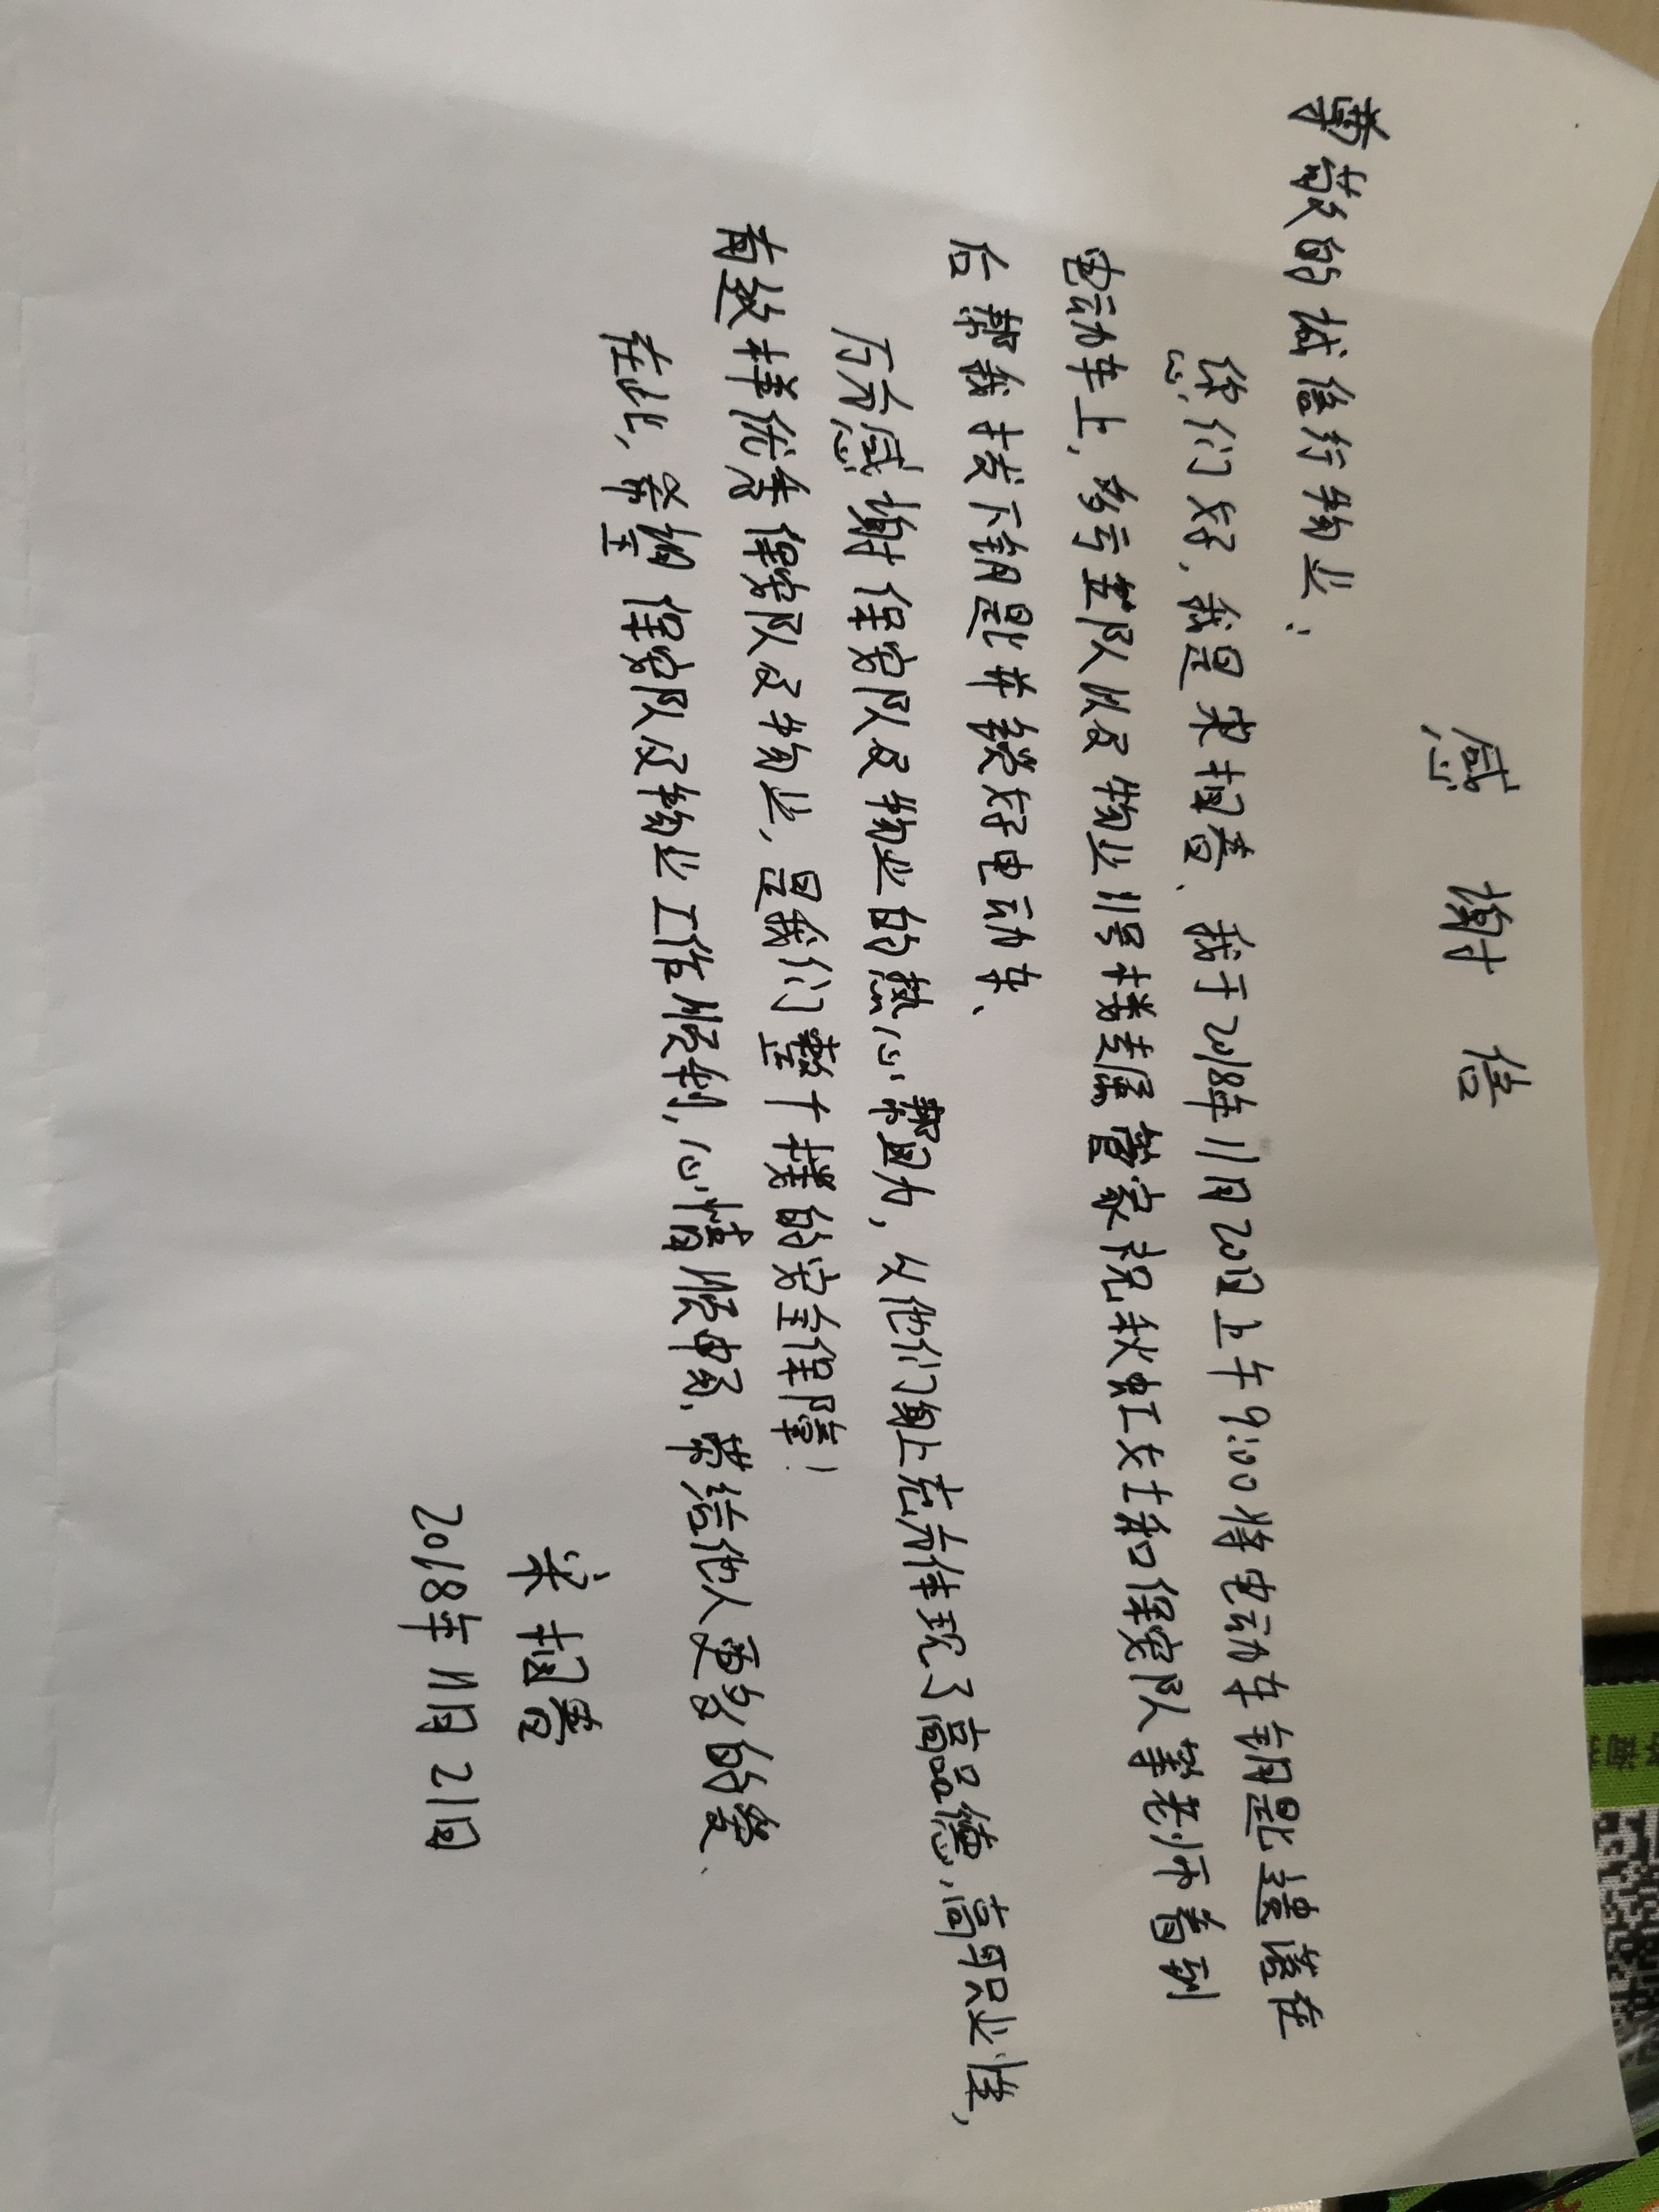 感谢信
尊敬的诚信行物业：
您们好，我是宋相春、我于2018年11月20日上午9:00将电动车钥匙遗落在
电动车上，多亏车队以及物业11号楼专属管家祝秋虹女士和保安队等老师看到
后帮我拔下钥匙并锁好电动车、
万分感谢保安队及物业的热心帮助，从他们身上充分体现了高品德，高职业性，
有这样优秀保安队及物业，是我们整个楼的安全保障！
在此，希望保安队及物业工作顺利，心情顺畅、带给他人更多的爱、
宋相春
2018年11月21日